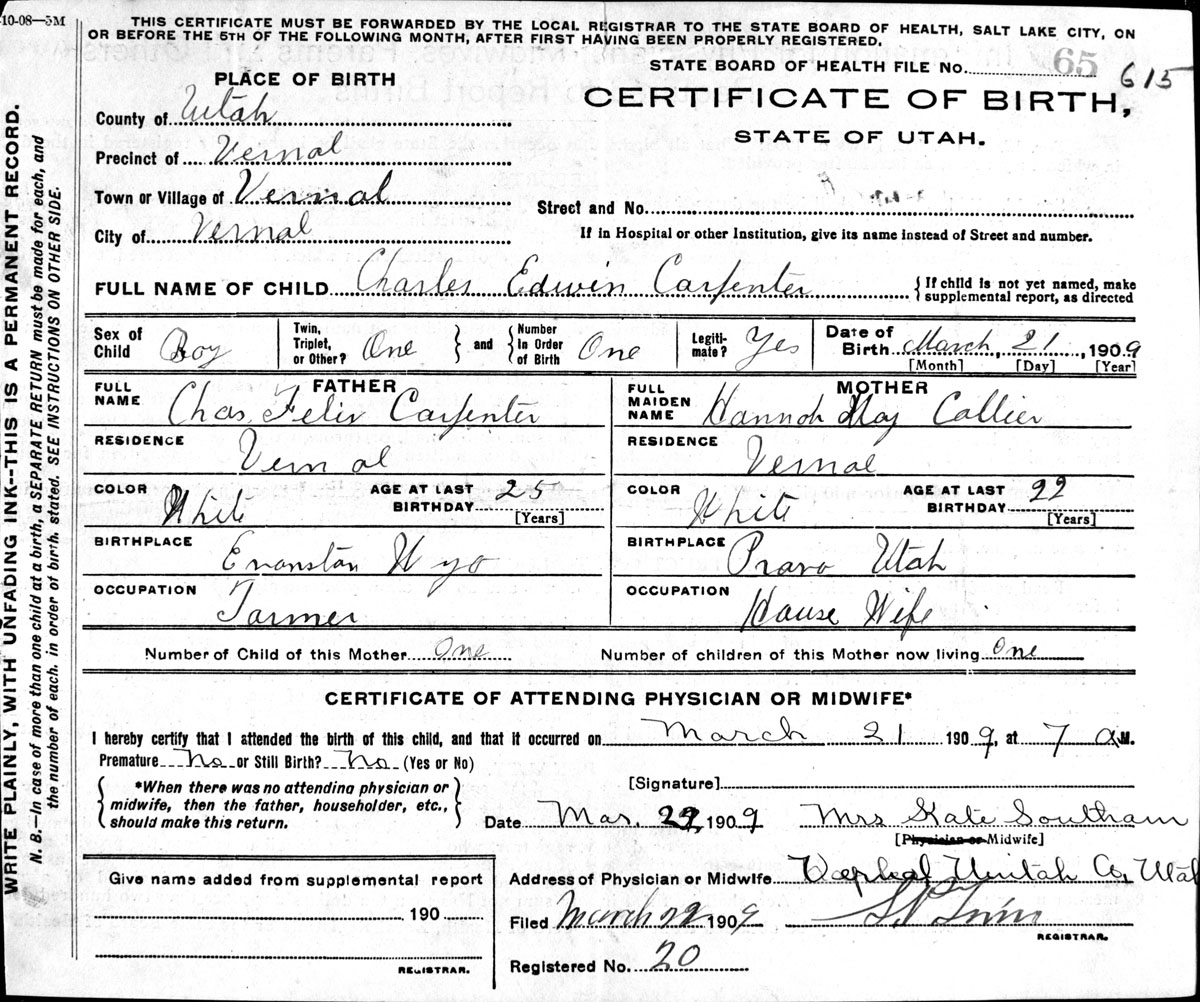 10-08—5M
THIS CERTIFICATE MUST BE FORWARDED BY THE LOCAL REGISTRAR TO THE STATE BOARD OF HEALTH, SALT LAKE CITY, ON
OR BEFORE THE 5TH OF THE FOLLOWING MONTH, AFTER FIRST HAVING BEEN PROPERLY REGISTERED.
STATE BOARD OF HEALTH FILE No. 65 615
PLACE OF BIRTH
CERTIFICATE OF BIRTH,
STATE OF UTAH.
County of Utah
Precinct of Vernal
Town or Village of Vernal
Street and No.
City of Vernal
If in Hospital or other Institution, give its name instead of Street and number.
FULL NAME OF CHILD Charles Edwin Carpenter { If child is not yet named, make supplemental report, as directed
Sex of Child Boy Twin, Triplet, or Other? One } and { Number In Order of Birth One Legitimate? Yes Date of Birth March, 21, 1909
[Month] [Day] [Year]
FATHER MOTHER
FULL NAME Chas. Felix Carpenter FULL MAIDEN NAME Hannah May Collier
RESIDENCE Vernal RESIDENCE Vernal
COLOR White AGE AT LAST BIRTHDAY 25 [Years] COLOR White AGE AT LAST BIRTHDAY 22 [Years]
BIRTHPLACE Evanston Wyo BIRTHPLACE Provo Utah
OCCUPATION Farmer OCCUPATION House Wife
Number of Child of this Mother One Number of children of this Mother now living One
CERTIFICATE OF ATTENDING PHYSICIAN OR MIDWIFE*
I hereby certify that I attended the birth of this child, and that it occurred on March 21 1909, at 7 A.M.
Premature No or Still Birth? No (Yes or No)
[Signature]
{ *When there was no attending physician or midwife, then the father, householder, etc., should make this return. }
Date Mar. 22, 1909 Mrs Kate Southam
[Physician or Midwife]
Address of Physician or Midwife Uintah Co, Utah
Give name added from supplemental report
190
REGISTRAR.
Filed March 22 1909
REGISTRAR.
Registered No. 20
WRITE PLAINLY, WITH UNFADING INK--THIS IS A PERMANENT RECORD.
N. B.—In case of more than one child at a birth, a SEPARATE RETURN must be made for each, and
the number of each, in order of birth, stated. SEE INSTRUCTIONS ON OTHER SIDE.